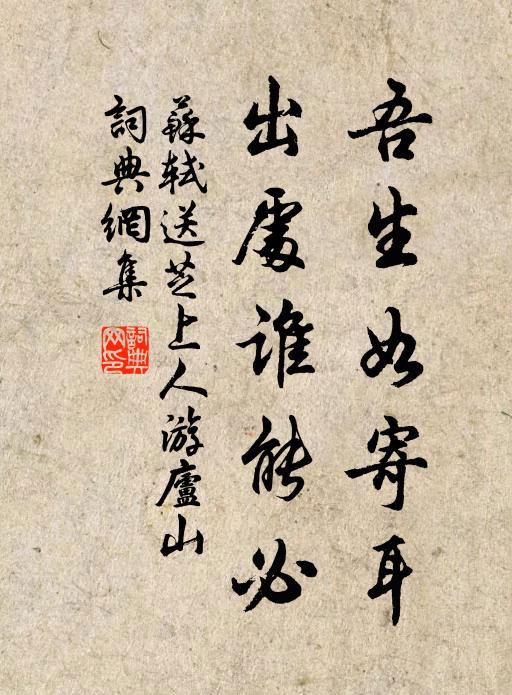 吾生如寄耳
出處誰能必
蘇軾送芝上人游廬山
詞典網集
詞典網印